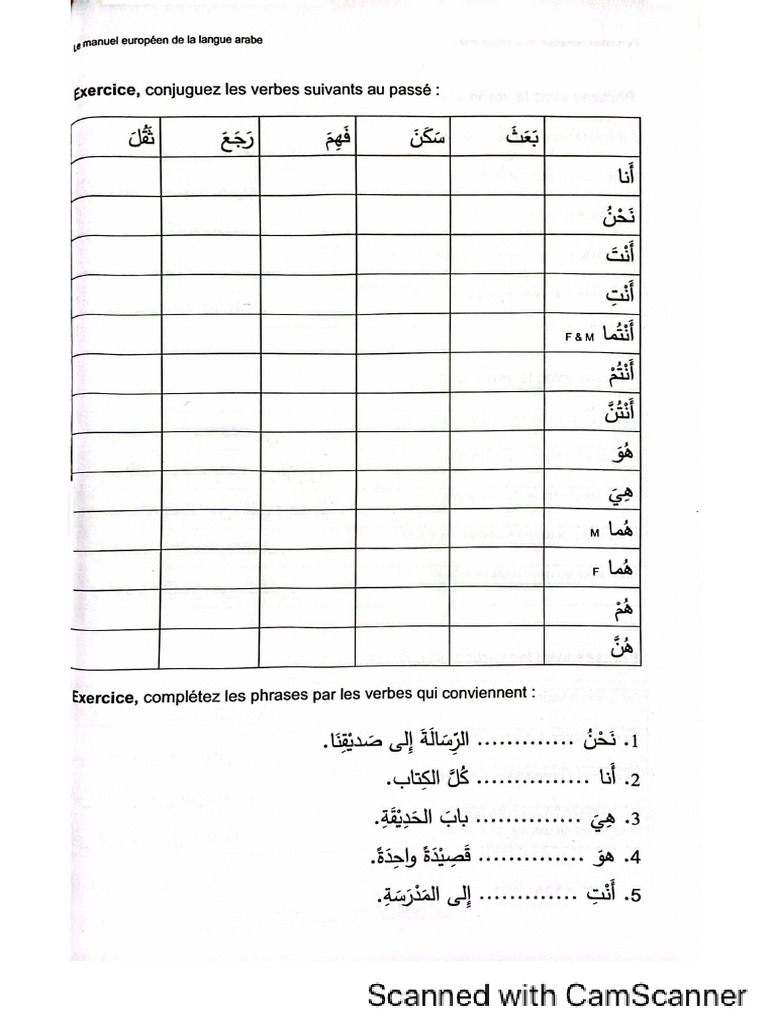 Le manuel européen de la langue arabe
Exercice, conjuguez les verbes suivants au passé :
بَعَثَ سَكَنَ فَهِمَ رَجَعَ ثَقُلَ
أَنا
نَحْنُ
أَنْتَ
أَنْتِ
أَنْتُما F & M
أَنْتُمْ
أَنْتُنَّ
هُوَ
هِيَ
هُما M
هُما F
هُمْ
هُنَّ
Exercice, complétez les phrases par les verbes qui conviennent :
1. نَحْنُ ............. الرِّسَالَةَ إِلى صَديْقِنَا.
2. أَنا ............... كُلَّ الكِتاب.
3. هِيَ .............. بابَ الحَدِيْقَةِ.
4. هوَ .............. قَصِيْدَةً واحِدَةً.
5. أَنْتِ ............. إِلى المَدْرَسَةِ.
Scanned with CamScanner